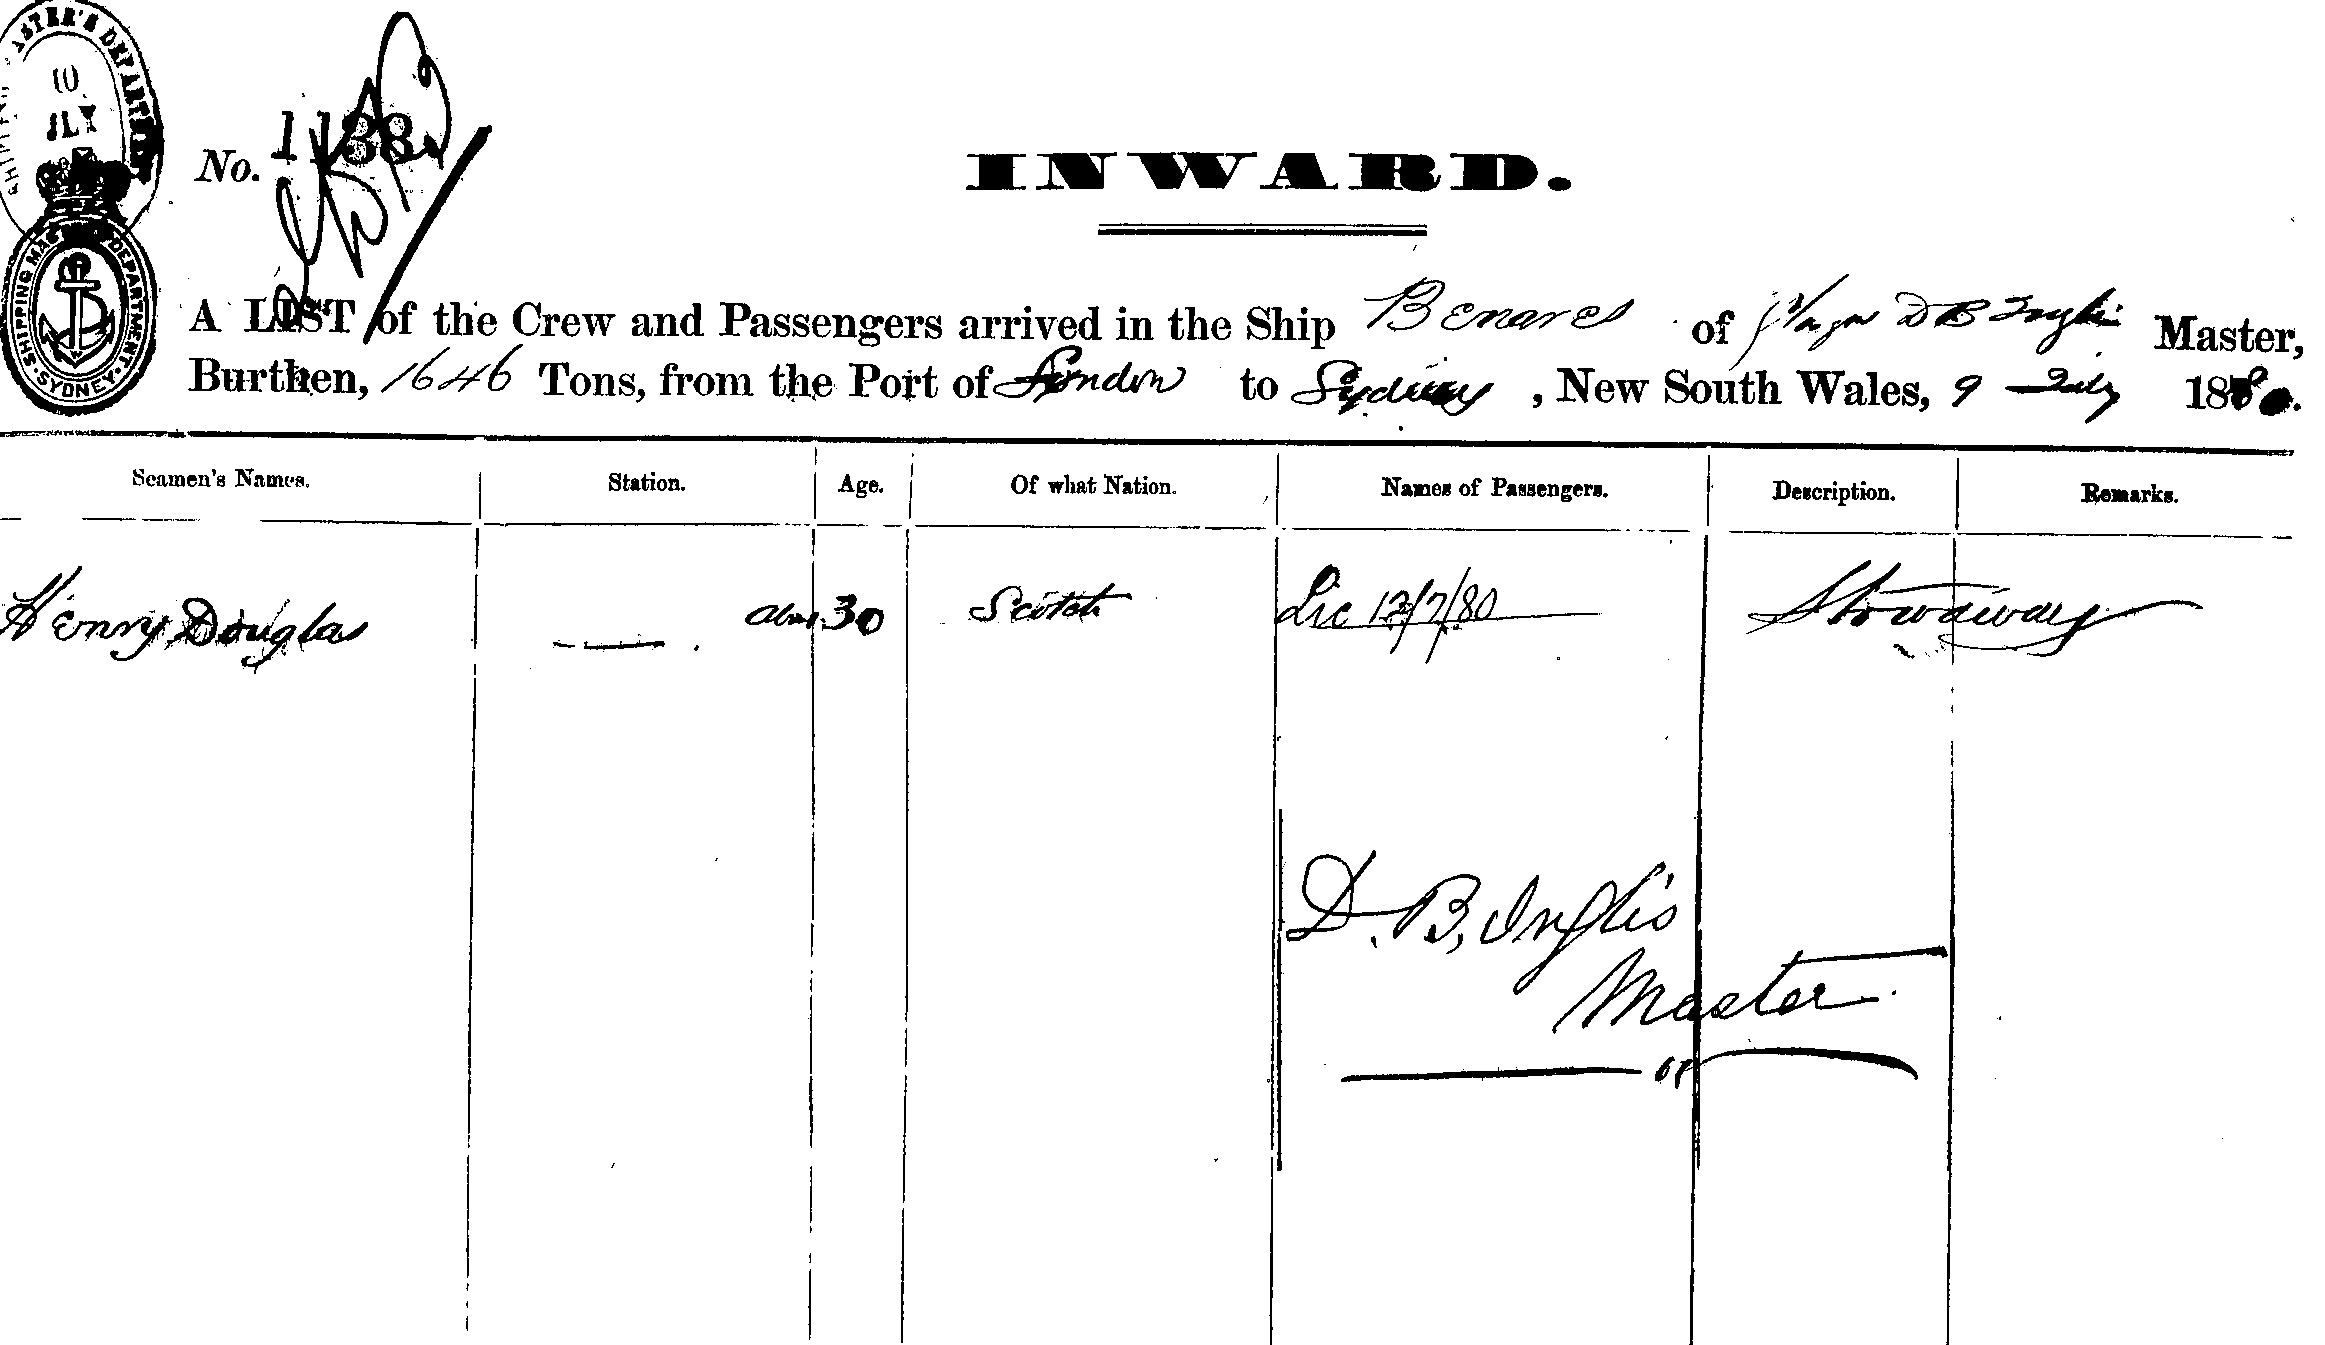 SHIPPING MASTER'S DEPARTMENT
10
JLY
SHIPPING MASTER'S DEPARTMENT · SYDNEY ·
No. 1138
INWARD.
A LIST of the Crew and Passengers arrived in the Ship Benares of D B Inglis Master,
Burthen, 1646 Tons, from the Port of London to Sydney, New South Wales, 9 July 1880.
Seamen's Names. Station. Age. Of what Nation. Names of Passengers. Description. Remarks.
Henry Douglas — abt 30 Scotch Lic 12/7/80 Stowaway
D. B. Inglis
Master